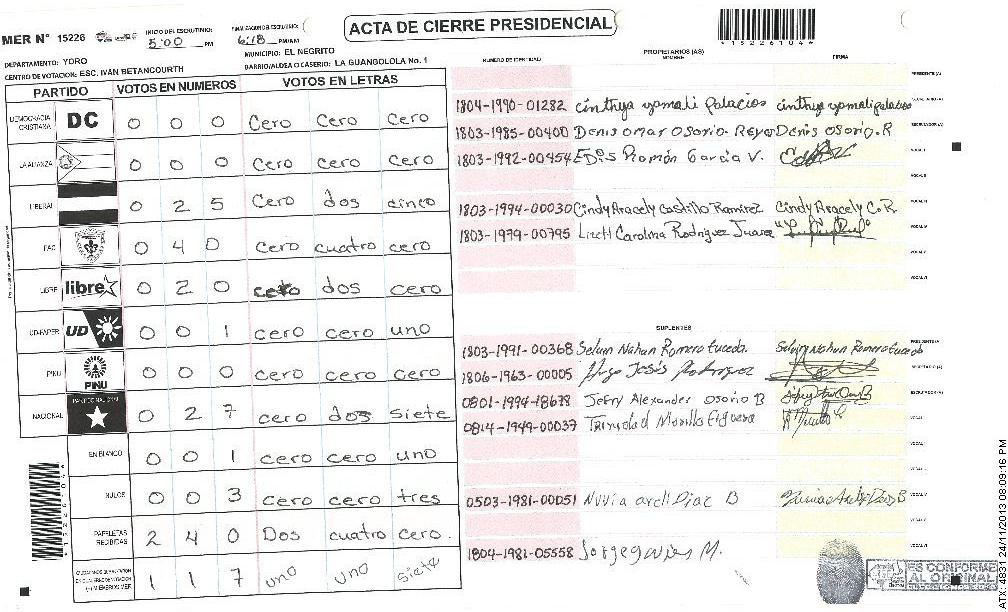 MER N° 15226
INICIO DEL ESCRUTINIO: 5:00 PM
FINALIZACION DEL ESCRUTINIO: 6:18 PM/AM
ACTA DE CIERRE PRESIDENCIAL
*15226104*
DEPARTAMENTO: YORO
MUNICIPIO: EL NEGRITO
CENTRO DE VOTACION: ESC. IVAN BETANCOURTH
BARRIO/ALDEA O CASERIO: LA GUANGOLOLA No. 1
PARTIDO VOTOS EN NUMEROS VOTOS EN LETRAS
DEMOCRACIA CRISTIANA DC 0 0 0 Cero Cero Cero
LA ALIANZA 0 0 0 Cero cero cero
LIBERAL 0 2 5 Cero dos cinco
PAC 0 4 0 cero cuatro cero
LIBRE libre 0 2 0 cero dos cero
UD-FAPER UD 0 0 1 cero cero uno
PINU PINU 0 0 0 cero cero cero
NACIONAL PARTIDO NACIONAL 0 2 7 cero dos siete
EN BLANCO 0 0 1 cero cero uno
NULOS 0 0 3 cero cero tres
PAPELETAS RECIBIDAS 2 4 0 Dos cuatro cero
1 1 7 uno uno siete
*15226104*
NUMERO DE IDENTIDAD
PROPIETARIOS (AS)
NOMBRE
FIRMA
PRESIDENTE(A)
1804-1990-01282 cinthya yamali Palacios cinthya yamali palacios SECRETARIO(A)
1803-1985-00400 Denis omar Osorio Reyes Denis osorio.R ESCRUTADOR(A)
1803-1992-00454 Edis Román García V. VOCAL I
VOCAL II
1803-1994-00030 Cindy Aracely Castillo Ramirez Cindy Aracely C.R VOCAL III
1803-1979-00795 Lizett Carolina Rodriguez Juarez VOCAL IV
VOCAL V
VOCAL VI
SUPLENTES
1803-1991-00368 Selvin Nahun Romero Euceda. Selvin Nahun Romero Euceda PRESIDENTE(A)
1806-1963-00005 Hugo Jesús Rodriguez SECRETARIO(A)
0801-1994-18678 Jefry Alexander osorio B ESCRUTADOR(A)
0814-1949-00037 Trinidad Morillo Figueroa VOCAL I
VOCAL II
VOCAL III
0503-1981-00051 Nuvia areli Diaz B VOCAL IV
VOCAL V
1804-1981-05558 VOCAL VI
ES CONFORME
AL ORIGINAL
ATX: 4831 24/11/2013 08:09:16 PM